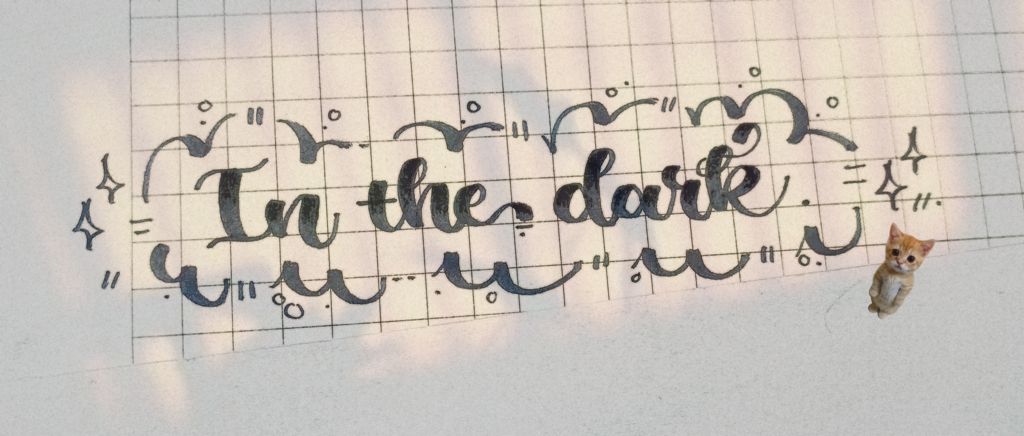 In the dark.